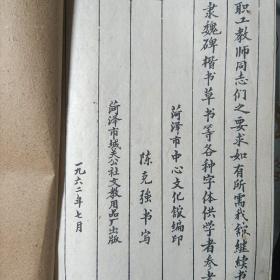 职工教师同志们之要求如有所需我馆继续书
隶魏碑楷书草书等各种字体供学者参考
菏泽市中心文化馆编印
陈克强书写
菏泽市城关公社文教用品厂出版
一九六二年七月